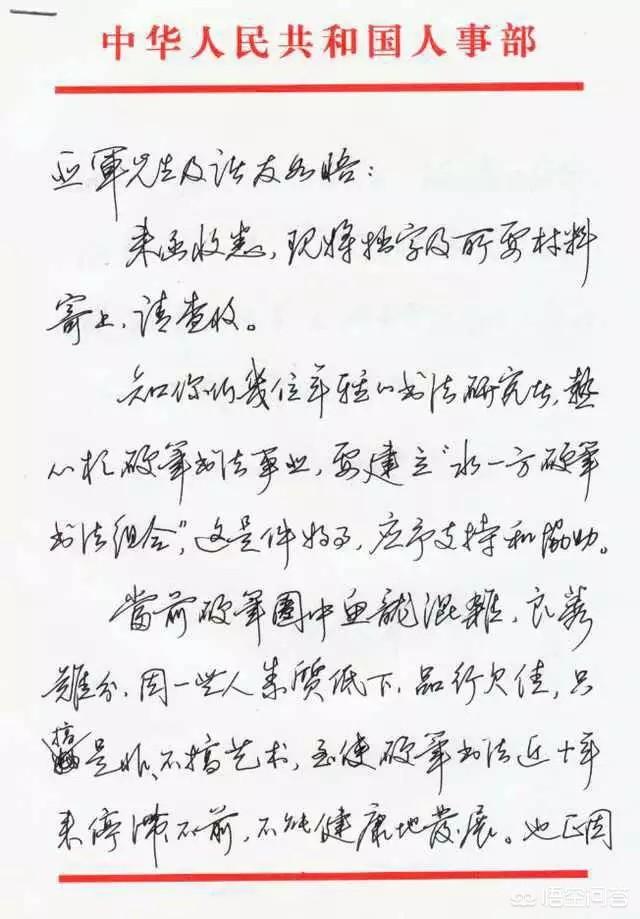 中华人民共和国人事部
亚军先生及诸友如晤：
来函收悉，现将拙字及所要材料
寄上，请查收。
知你们几位年轻的书法研究者，热
心于硬笔书法事业，要建立“水一方硬笔
书法组合”，这是件好事，应予支持和协助。
當前硬筆圈中鱼龍混雜，良莠
難分，因一些人素質低下，品行欠佳，只
搞是非、不搞艺术，至使硬筆书法近十年
来停滞不前，不能健康地發展。也正因
悟空问答